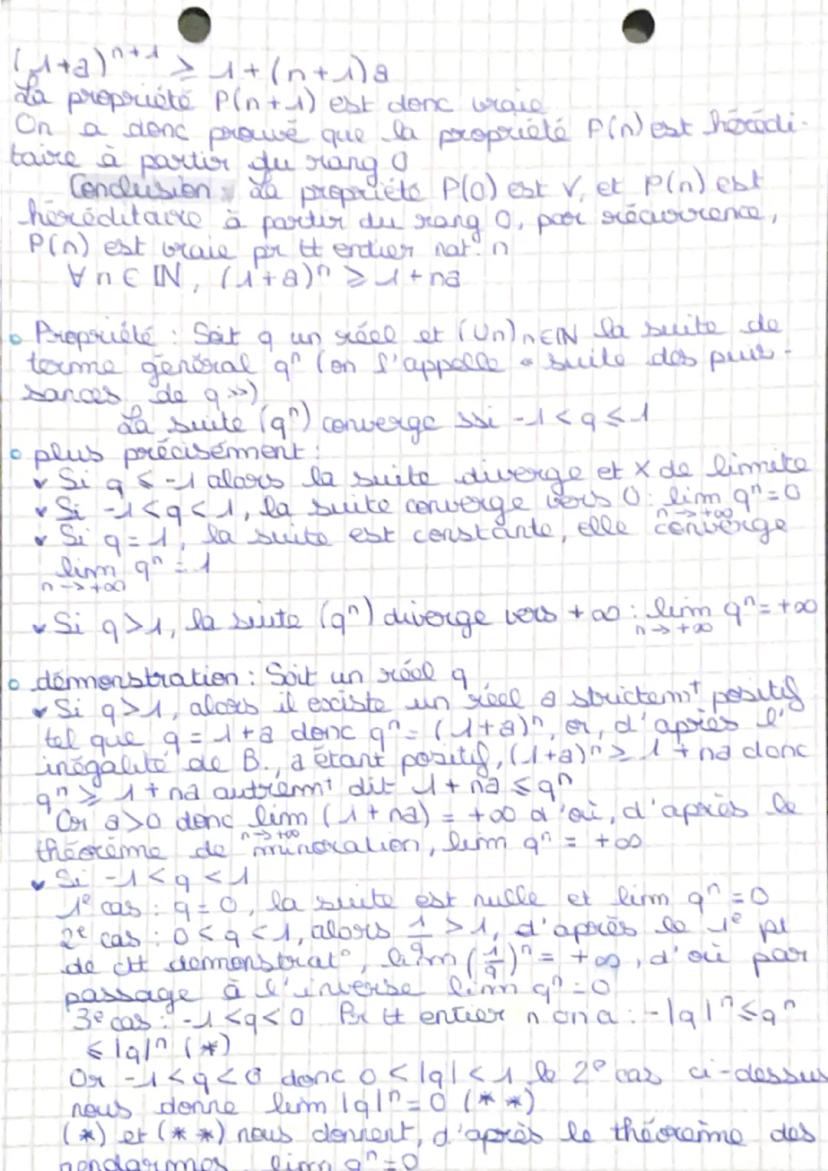 (1+a)ⁿ⁺¹ ≥ 1+(n+1)a
La propriété P(n+1) est donc vraie
On a donc prouvé que la propriété P(n) est hérédi-
taire à partir du rang 0
Conclusion : La propriété P(0) est V, et P(n) est
héréditaire à partir du rang 0, par récurrence,
P(n) est vraie pr tt entier nat. n
∀ n ∈ ℕ, (1+a)ⁿ ≥ 1+na
o Propriété : Soit q un réel et (Un)n∈ℕ la suite de
terme général qⁿ (on l'appelle « suite des puis-
sances de q »)
La suite (qⁿ) converge ssi -1 < q ≤ 1
o plus précisément :
Si q ≤ -1 alors la suite diverge et X de limite
Si -1<q<1, la suite converge vers 0 : lim qⁿ = 0
n→+∞
Si q=1, la suite est constante, elle converge
lim qⁿ = 1
n→+∞
Si q>1, la suite (qⁿ) diverge vers +∞ : lim qⁿ = +∞
n→+∞
o démonstration : Soit un réel q
Si q>1, alors il existe un réel a strictemᵗ positif
tel que q = 1+a donc qⁿ = (1+a)ⁿ, or, d'après l'
inégalité de B., a étant positif, (1+a)ⁿ ≥ 1+na donc
qⁿ ≥ 1+na autremᵗ dit 1+na ≤ qⁿ
Or a>0 donc lim (1+na) = +∞ d'où, d'après le
n→+∞
théorème de minoration, lim qⁿ = +∞
Si -1<q<1
1ᵉ cas : q=0, la suite est nulle et lim qⁿ = 0
2ᵉ cas : 0<q<1, alors 1/q > 1, d'après le 1ᵉ pt
de ctt demonstrat°, lim (1/q)ⁿ = +∞, d'où par
passage à l'inverse lim qⁿ = 0
3ᵉ cas : -1<q<0 Pr tt entier n on a : -|q|ⁿ ≤ qⁿ
≤ |q|ⁿ (*)
Or -1<q<0 donc 0<|q|<1 le 2ᵉ cas ci-dessus
nous donne lim |q|ⁿ = 0 (**)
(*) et (**) nous donnent, d'après le théorème des
gendarmes lim qⁿ = 0